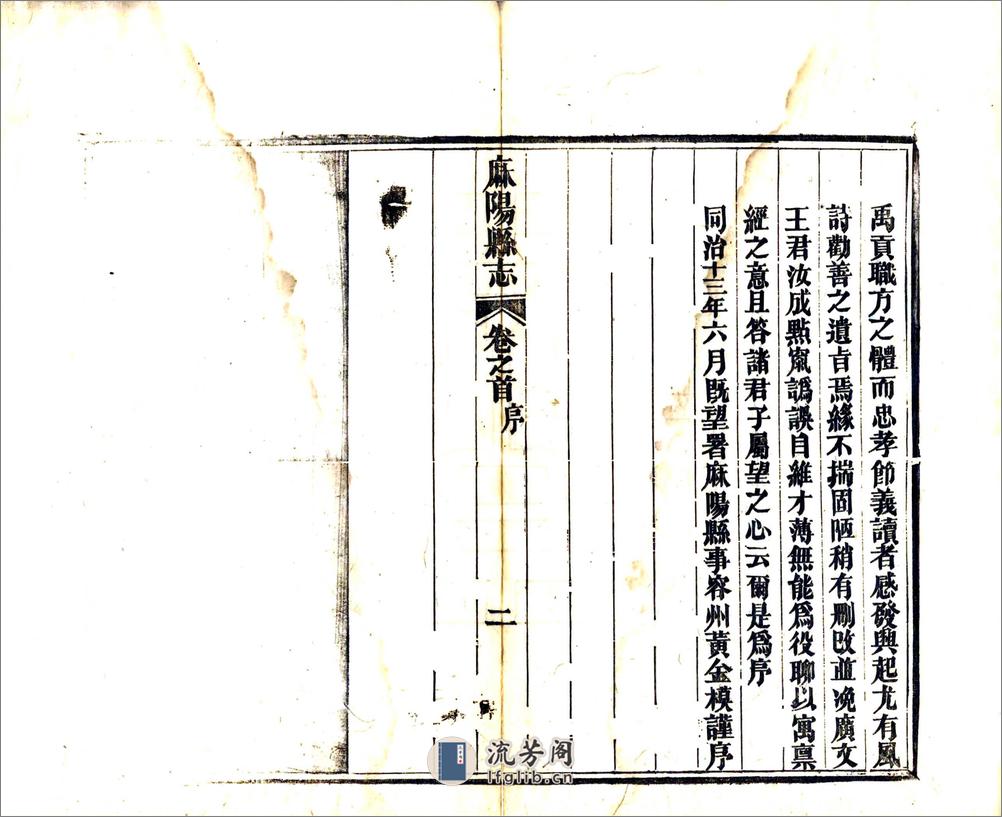 禹貢職方之體而忠孝節義讀者感發興起尤有風
詩勸善之遺㫖焉緣不揣固陋稍有刪改並浼廣文
王君汝成點竄譌誤自維才薄無能爲役聊以寓稟
經之意且答諸君子屬望之心云爾是爲序
同治十三年六月既望署麻陽縣事容州黃金模謹序
麻陽縣志
卷之首
序
二
流芳阁
lfglib.cn